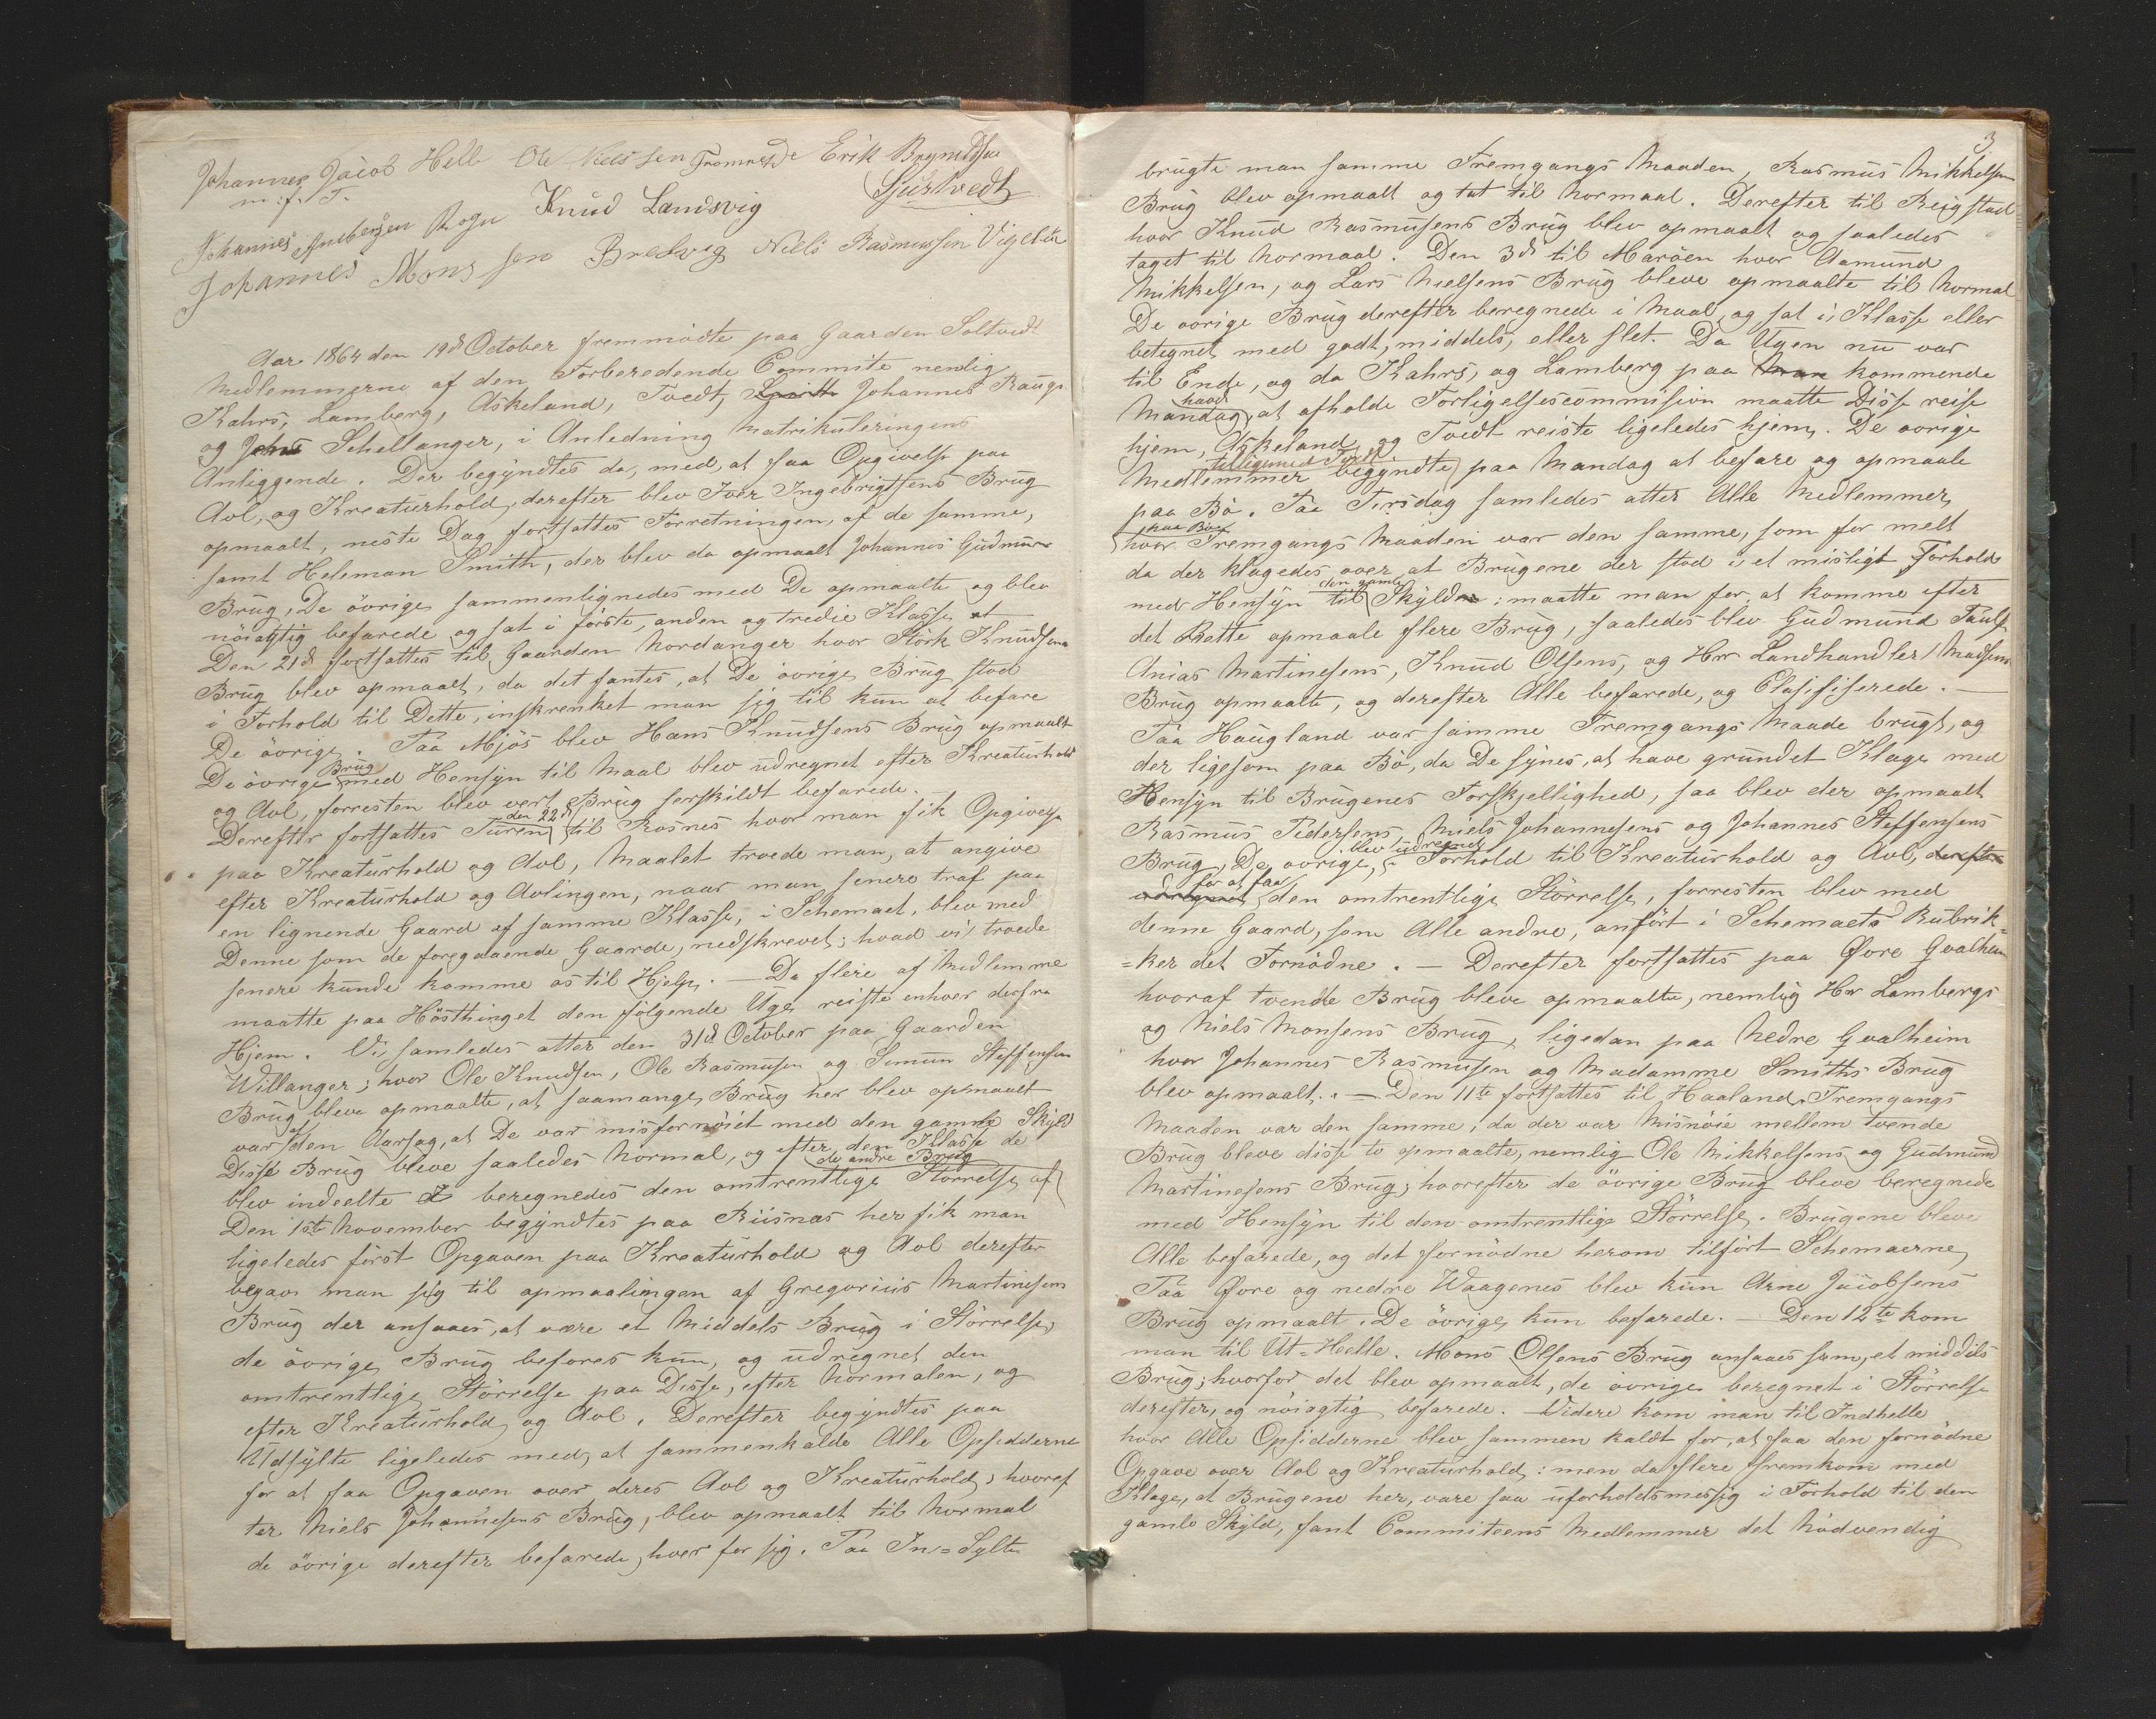 Johannes Jacob Helle Ole Nielssen Tromnesde Erik Brynildsen
m. f. P. Sjurtvedt
Johannes Andersen Rogn Knud Landsvig
Johannes Monssen Bredvig Niels Rasmussen Vigeli
Aar 1864 den 19d October fremmödte paa Gaarden Soltvedt
Medlemmerne af den Forberedende Commite nemlig
Kahrs, Lamberg, Askeland, Tvedt, Smith Johannes Raug
og Johs Schellanger, i Anledning Matrikuleringens
Anliggende. Der begyndtes da, med, at faa Opgivelse paa
Avl, og Kreaturhold, derefter blev Iver Ingebrigtsens Brug
opmaalt, neste Dag fortsattes Forretningen, af de samme,
samt Heleman Smith, der blev da opmaalt Johannes Gudmuns
Brug, De övrige sammenlignedes med De opmaalte og blev
nöiagtig befarede og sat i förste, anden og tredie Klasse
Den 21d fortsattes til Gaarden Nordanger hvor Störk Knudsens
Brug blev opmaalt, da det fantes, at De övrige Brug stod
i Forhold til Dette, inskrenket man sig til kun at befare
De övrige. Paa Mjös blev Hans Knudsens Brug opmaalt
De övrige Brug med Hensyn til Maal blev udregnet efter Kreaturhold
og Avl, forresten blev vert Brug serskildt befarede.
Derefter fortsattes Turen den 22d til Rosnes hvor man fik Opgivelse
paa Kreaturhold og Avl, Maalet troede man, at angive
efter Kreaturhold og Avlingen, naar man senere traf paa
en lignende Gaard af samme Klasse, i Schemaet, blev med
Denne som de foregaaende Gaarde, nedskrevet; hvad vi troede
senere kunde komme os til Hjelp. — Da flere af Medlemme
maatte paa Hösthinget den fölgende Uge, reiste enhver derfra
Hjem. Vi samledes atter den 31d October paa Gaarden
Willanger; hvor Ole Knudsen, Ole Rasmusen og Simun Steffensen
Brug bleve opmaalte, at saamange Brug her blev opmaalt
var af den Aarsag, at De var misfornöiet med den gamle Skyld
Disse Brug bleve saaledes Normal, og efter den Klasse de
blev indeelte beregnedes den omtrentlige Störrelse af de andre Brug
Den 1ste November begyndtes paa Riisnæs her fik man
ligeledes först Opgaven paa Kreaturhold og Avl derefter
begav man sig til opmaalingen af Gregorius Martinesens
Brug der ansaaes, at være et Middels Brug i Störrelse,
de övrige Brug befores kun, og udregnet den
omtrentlige Störrelse paa Disse, efter Normalen, og
efter Kreaturhold og Avl. Derefter begyndtes paa
Udsylte ligeledes med, at sammenkalde Alle Opsidderne
for at faa Opgaven over deres Avl og Kreaturhold, hvoref
ter Niels Johannesens Brug, blev opmaalt til Normal
de övrige derefter befarede, hver for sig. Paa In=Sylte
3
brugte man samme Fremgangs Maaden, Rasmus Mikkelsen
Brug blev opmaalt og tat til Normal. Derefter til Reigstad
hvor Knud Rasmusens Brug blev opmaalt og saaledes
taget til Normal. Den 3d til Maröen hvor Aamund
Mikkelsen, og Lars Nielsens Brug bleve opmaalte til Normal
De övrige Brug derefter beregnede i Maal, og sat i Klasse eller
betegnet med godt, middels, eller slet. Da Ugen nu var
til Ende, og da Kahrs, og Lamberg paa kommende
Mandag havde at afholde Forligelsescommission maatte Disse reise
hjem, Askeland og Tvedt reiste ligeledes hjem. De övrige
Medlemmer tilligemed Tvedt begyndte paa Mandag at befare og opmaale
paa Bö. Paa Tirsdag samledes atter Alle Medlemmer,
hvor paa Böe Fremgangs Maaden var den samme, som for melt
da der klagedes over at Brugene der stod i et misligt Forhold
med Hensyn til den gamle Skyld: maatte man for, at komme efter
det Rette opmaale flere Brug, saaledes blev Gudmund Pauls
Anias Martinesens, Knud Olsens, og Hrr Landhandler Madsens
Brug opmaalte, og derefter Alle befarede, og Clasifiserede. —
Paa Haugland var samme Fremgangs Maade brugt, og
der ligesom paa Bö, da De synes, at have grundet Klage med
Hensyn til Brugenes Forskjellighed, saa blev der opmaalt
Rasmus Pedersens, Niels Johannesens og Johannes Steffensens
Brug, De övrige, blev udregnet i Forhold til Kreaturhold og Avl, derefter
udregnet for at faa den omtrentlige Störrelse, forresten blev med
denne Gaard, som Alle andre, anfört i Schemaets Rubrik=
=ker det Fornödne. — Derefter fortsattes paa Øvre Gvalheim
hvoraf tvende Brug bleve opmaalte, nemlig Hrr Lambergs
og Niels Monsens Brug, ligedan paa Nedre Gvalheim
hvor Johannes Rasmusen og Madamme Smiths Brug
blev opmaalt. — Den 11te fortsattes til Haaland. Fremgangs
Maaden var den samme, da der var Misnöie mellem tvende
Brug bleve disse to opmaalte, nemlig Ole Mikkelsens og Gudmund
Martinesens Brug; hvorefter de övrige Brug bleve beregnede
med Hensyn til den omtrentlige Störrelse. Brugene bleve
Alle befarede, og det fornödne herom tilfört Schemaerne,
Paa Øvre og nedre Waagenes blev kun Arne Jacobsens
Brug opmaalt. De övrige kun befarede. — Den 12te kom
man til Ut=Helle. Mons Olsens Brug ansaaes som, et middels
Brug; hvorfor det blev opmaalt, de övrige beregnet i Störrelse
derefter, og nöiagtig befarede. Videre kom man til Indhelle
hvor Alle Opsidderne blev sammen kaldt for, at faa den fornödne
Opgave over Avl og Kreaturhold: men da flere fremkom med
Klage, at Brugene her, vare saa uforholdsmessig i Forhold til den
gamle Skyld, fant Commiteens Medlemmer det Nödvendig